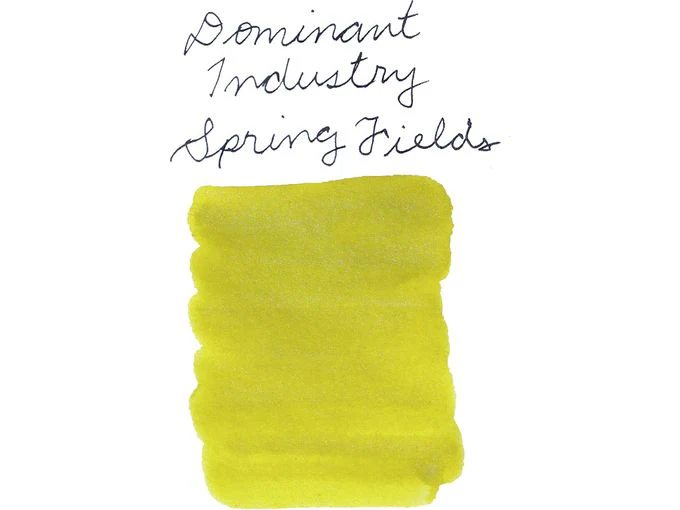 Dominant
Industry
Spring Fields